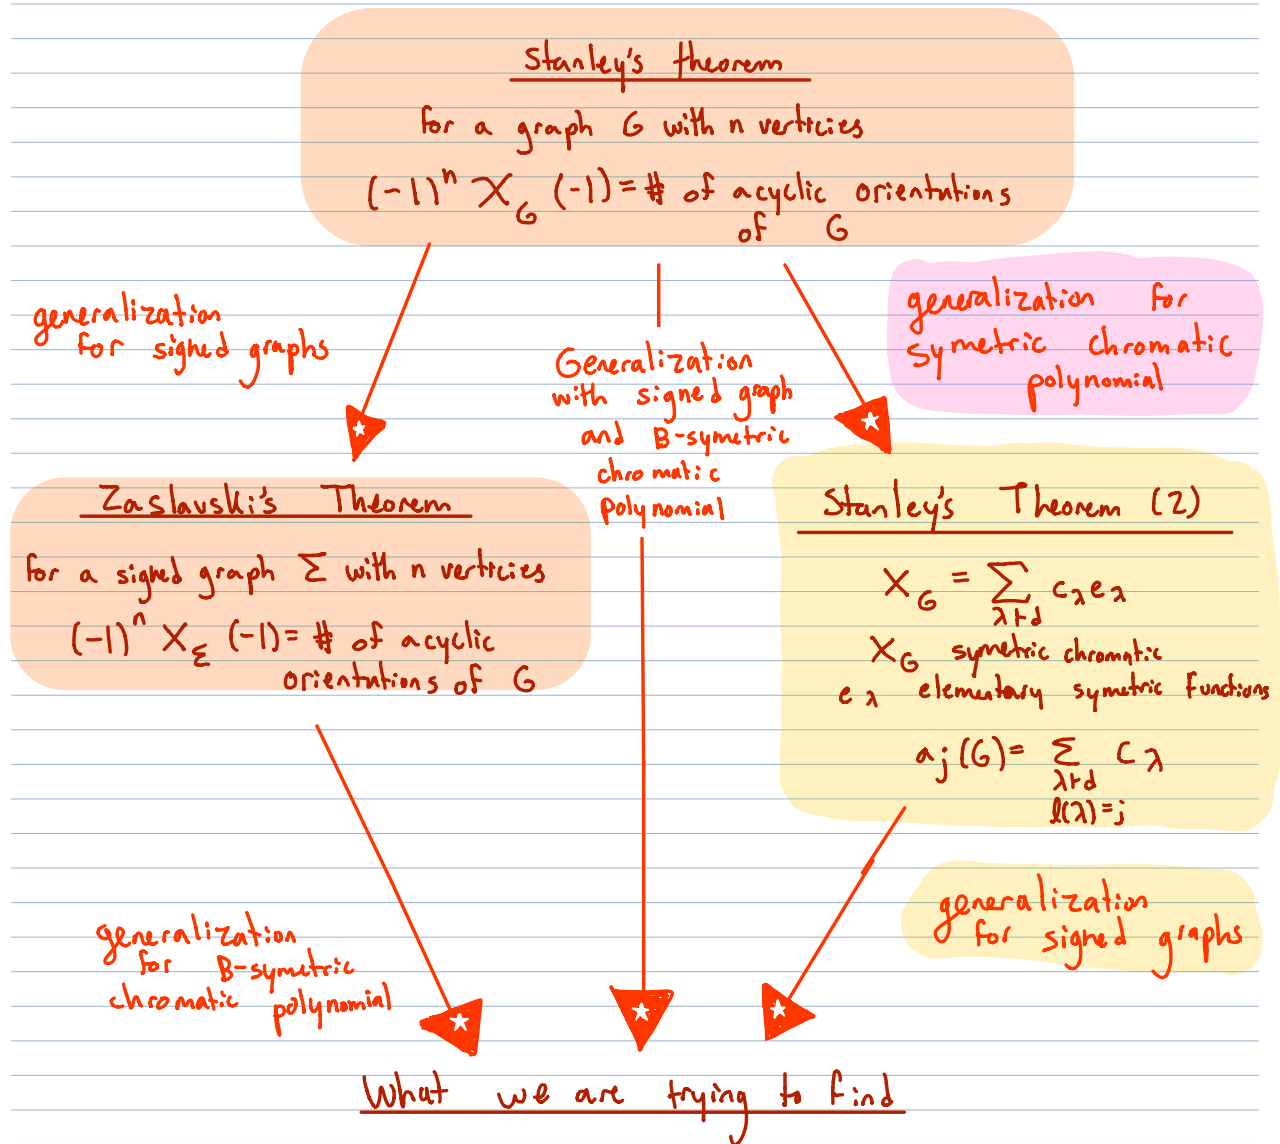 Stanley's theorem
for a graph G with n verticies
(-1)^n X_G (-1) = # of acyclic orientations
of G
generalization
for signed graphs
Generalization
with signed graph
and B-symetric
chromatic
Polynomial
generalization for
symetric chromatic
polynomial
Zaslavski's Theorem
for a signed graph Σ with n verticies
(-1)^n X_Σ (-1) = # of acyclic
orientations of G
Stanley's Theorem (2)
X_G = Σ_{λ⊢d} c_λ e_λ
X_G symetric chromatic
e_λ elementary symetric functions
a_j(G) = Σ_{λ⊢d, l(λ)=j} c_λ
generalization
for B-symetric
chromatic polynomial
generalization
for signed graphs
What we are trying to find